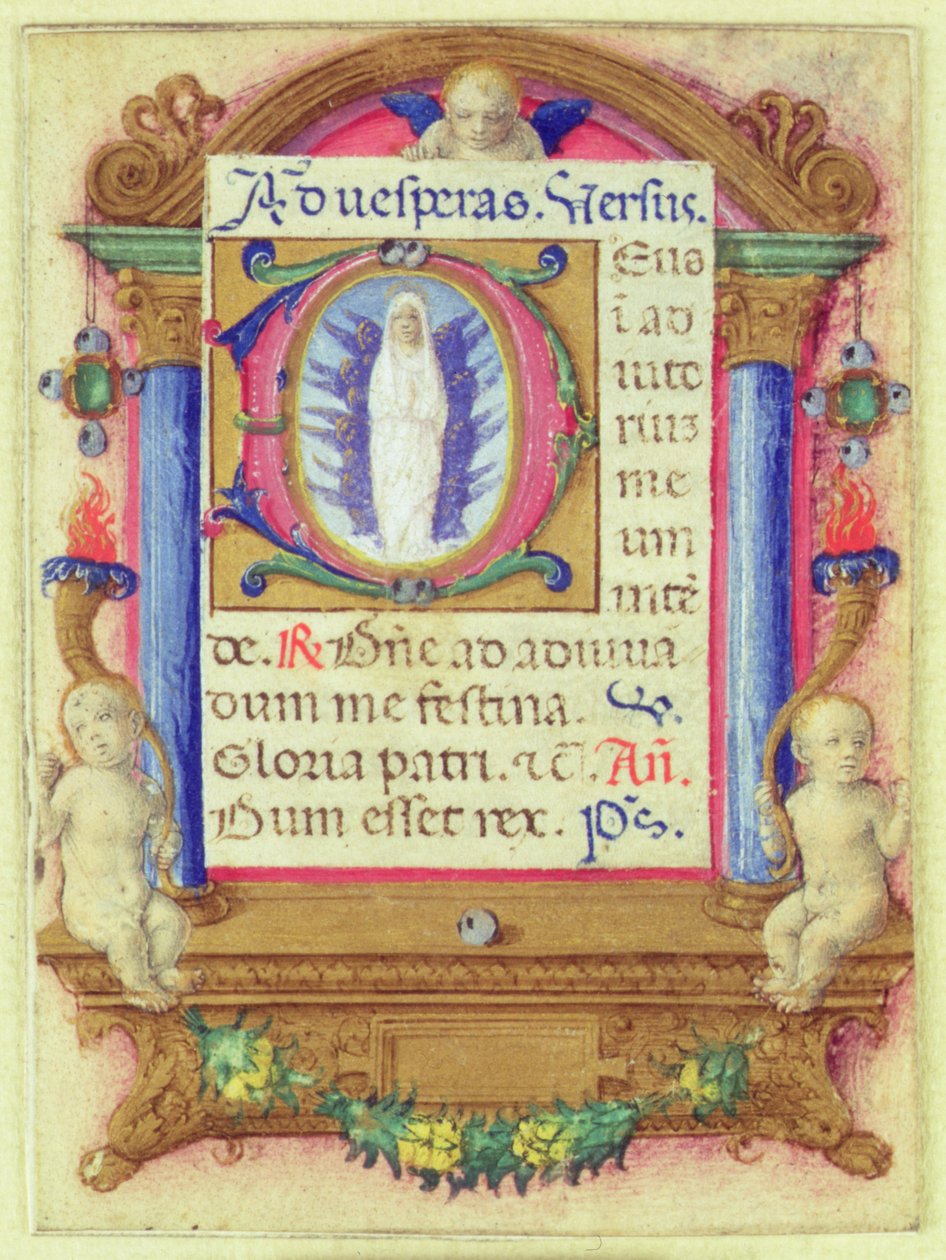 Ad uesperas. Versus.
DEus
ī ad
iuto
riuȝ
me
um
intē
de. ℟ Dñe ad adiuuā
dum me festina. ℣.
Gloria patri. ⁊c̄. Añ.
Dum esset rex. p̄s.